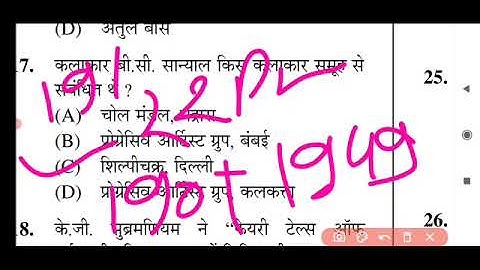 (D) अतुल बोस
17. कलाकार बी.सी. सान्याल किस कलाकार समूह से
संबंधित थे ?
(A) चोल मंडल, मद्रास
(B) प्रोग्रेसिव आर्टिस्ट ग्रुप, बंबई
(C) शिल्पीचक्र, दिल्ली
(D) प्रोग्रेसिव आर्टिस्ट ग्रुप, कलकत्ता
18. के.जी. सुब्रमणियम ने “फेयरी टेल्स ऑफ
25.
26.
191
22
1901 1949